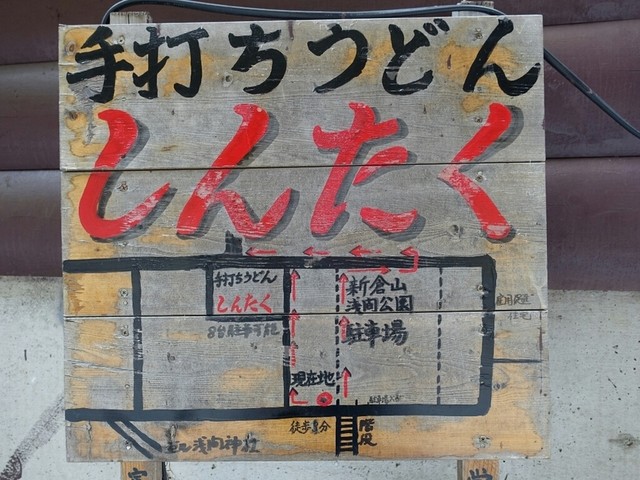 手打ちうどん
しんたく
手打ちうどん
しんたく
8台駐車可能
新倉山
浅間公園
駐車場
現在地
徒歩1分
階段
浅間神社